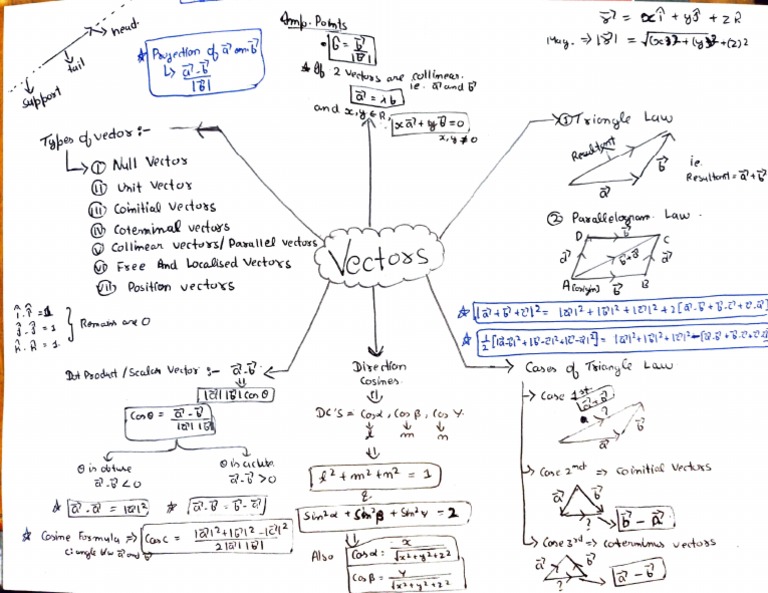 head
tail
support
☆ Projection of a⃗ on b⃗
↳ a⃗·b⃗ / |b⃗|
Imp. Points
• b̂ = b⃗ / |b⃗|
☆ If 2 vectors are collinear.
i.e. a⃗ and b⃗
a⃗ = λb
and x, y ∈ R, xa⃗ + yb⃗ = 0
x, y ≠ 0
r⃗ = xî + yĵ + zk̂
Mag. ⇒ |r⃗| = √(x)²+(y)²+(z)²
Types of vector :-
(i) Null Vector
(ii) Unit Vector
(iii) Coinitial Vectors
(iv) Coterminal Vectors
(v) Collinear Vectors/Parallel vectors
(vi) Free And Localised Vectors
(vii) Position vectors
Vectors
① Triangle Law
Resultant
a⃗
b⃗
i.e.
Resultant = a⃗+b⃗
② Parallelogram Law.
D b⃗ C
a⃗ a⃗+b⃗ a⃗
A(origin) b⃗ B
☆ |a⃗+b⃗+c⃗|² = |a⃗|²+|b⃗|²+|c⃗|²+2[a⃗·b⃗+b⃗·c⃗+c⃗·a⃗]
☆ ½[|a⃗-b⃗|²+|b⃗-c⃗|²+|c⃗-a⃗|²] = |a⃗|²+|b⃗|²+|c⃗|²-[a⃗·b⃗+b⃗·c⃗+c⃗·a⃗
î.î = 1
ĵ.ĵ = 1
k̂.k̂ = 1.
} Remain are 0
Dot Product/Scalar Vector :- a⃗·b⃗
|a⃗||b⃗|cosθ
cosθ = a⃗·b⃗ / |a⃗||b⃗|
θ is obtuse
a⃗·b⃗ < 0
θ is acute
a⃗·b⃗ > 0
☆ a⃗·a⃗ = |a⃗|²
☆ a⃗·b⃗ = b⃗·a⃗
☆ Cosine Formula ⇒ cos c = |a⃗|²+|b⃗|²-|c⃗|² / 2|a⃗||b⃗|
(angle b/w a⃗ and b⃗
Direction
Cosines.
DC's = Cosα, Cosβ, Cosγ.
l m n
l² + m² + n² = 1
&
Sin²α + Sin²β + Sin²γ = 2
Also
Cosα = x / √x²+y²+z²
Cosβ = y / √x²+y²+z²
Cases of Triangle Law
→ Case 1st.
a⃗+b⃗
?
a⃗
b⃗
→ Case 2nd ⇒ coinitial vectors
a⃗ b⃗
? b⃗ - a⃗
→ Case 3rd ⇒ coterminus vectors
a⃗ b⃗
? a⃗ - b⃗